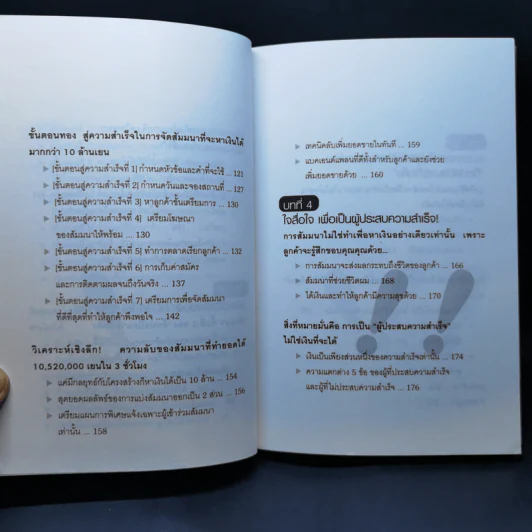 ขั้นตอนทอง สู่ความสำเร็จในการจัดสัมมนาที่จะหาเงินได้
มากกว่า 10 ล้านเยน
▶ [ขั้นตอนสู่ความสำเร็จที่ 1] กำหนดหัวข้อและค่าที่จะใช้ ... 121
▶ [ขั้นตอนสู่ความสำเร็จที่ 2] กำหนดวันและจองสถานที่ ... 127
▶ [ขั้นตอนสู่ความสำเร็จที่ 3] หาลูกค้าขั้นเตรียมการ ... 130
▶ [ขั้นตอนสู่ความสำเร็จที่ 4] เตรียมโฆษณา
ของสัมมนาให้พร้อม ... 130
▶ [ขั้นตอนสู่ความสำเร็จที่ 5] ทำการตลาดเรียกลูกค้า ... 132
▶ [ขั้นตอนสู่ความสำเร็จที่ 6] การเก็บค่าสมัคร
และการติดตามผลจนถึงวันจริง ... 137
▶ [ขั้นตอนสู่ความสำเร็จที่ 7] เตรียมการเพื่อจัดสัมมนา
ที่ดีที่สุดที่ทำให้ลูกค้าพึงพอใจ ... 142
วิเคราะห์เชิงลึก! ความลับของสัมมนาที่ทำยอดได้
10,520,000 เยนใน 3 ชั่วโมง
▶ แค่มีกลยุทธ์กับโครงสร้างก็หาเงินได้เป็น 10 ล้าน ... 154
▶ สุดยอดผลลัพธ์ของการแบ่งสัมมนาออกเป็น 2 ส่วน ... 156
▶ เตรียมแผนการพิเศษแจ้งเฉพาะผู้เข้าร่วมสัมมนา
เท่านั้น ... 158
▶ เทคนิคลับเพิ่มยอดขายในทันที ... 159
▶ แบคเอนด์แพลนที่ดีทั้งสำหรับลูกค้าและยังช่วย
เพิ่มยอดขายด้วย ... 160
บทที่ 4
ใจสื่อใจ เพื่อเป็นผู้ประสบความสำเร็จ!
การสัมมนาไม่ใช่ทำเพื่อหาเงินอย่างเดียวเท่านั้น เพราะ
ลูกค้าจะรู้สึกขอบคุณคุณด้วย...
▶ การสัมมนาจะส่งผลกระทบถึงชีวิตของลูกค้า ... 166
▶ สัมมนาที่ช่วยชีวิตผม ... 168
▶ ได้เงินและทำให้ลูกค้ามีความสุขด้วย ... 170
สิ่งที่หมายมั่นคือ การเป็น "ผู้ประสบความสำเร็จ"
ไม่ใช่เงินที่จะได้
▶ เงินเป็นเพียงส่วนหนึ่งของความสำเร็จเท่านั้น ... 174
▶ ความแตกต่าง 5 ข้อ ของผู้ที่ประสบความสำเร็จ
และผู้ที่ไม่ประสบความสำเร็จ ... 176